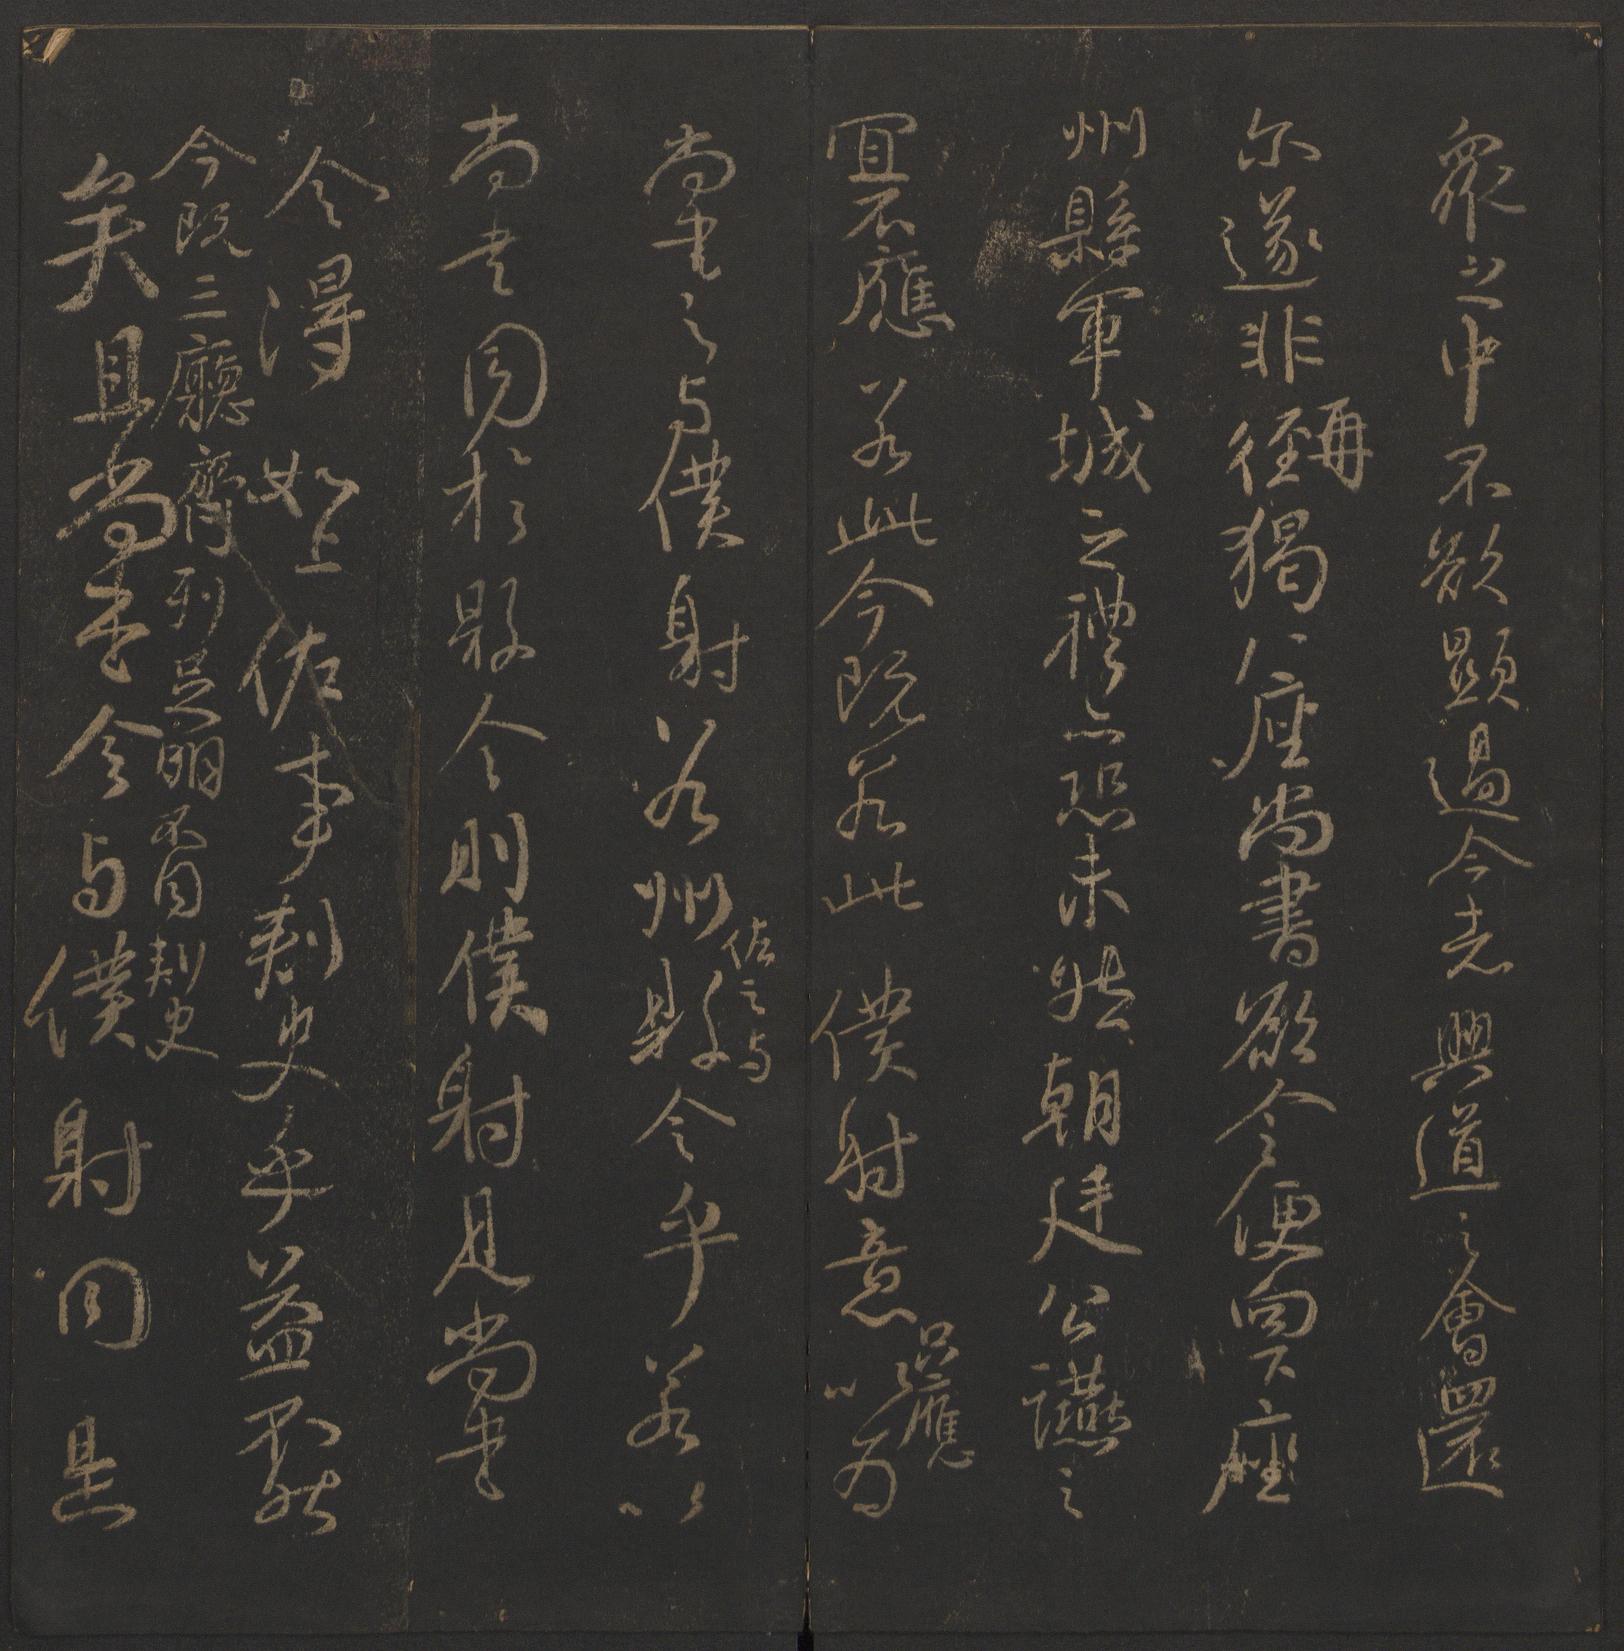 衆之中不欲顯過今者興道之會還
尔遂非再徑猲八座尚書欲令便向下座
州縣軍城之禮亦恐未然朝廷公讌之
宜不應若此今既若此僕射意只應以為
尚書之与僕射若州佐之与縣令乎若以
尚書同於縣令則僕射見尚書
令得如上佐事刺史乎益不然
今既三廳齊列足明不同刺史
矣且尚書令与僕射同是